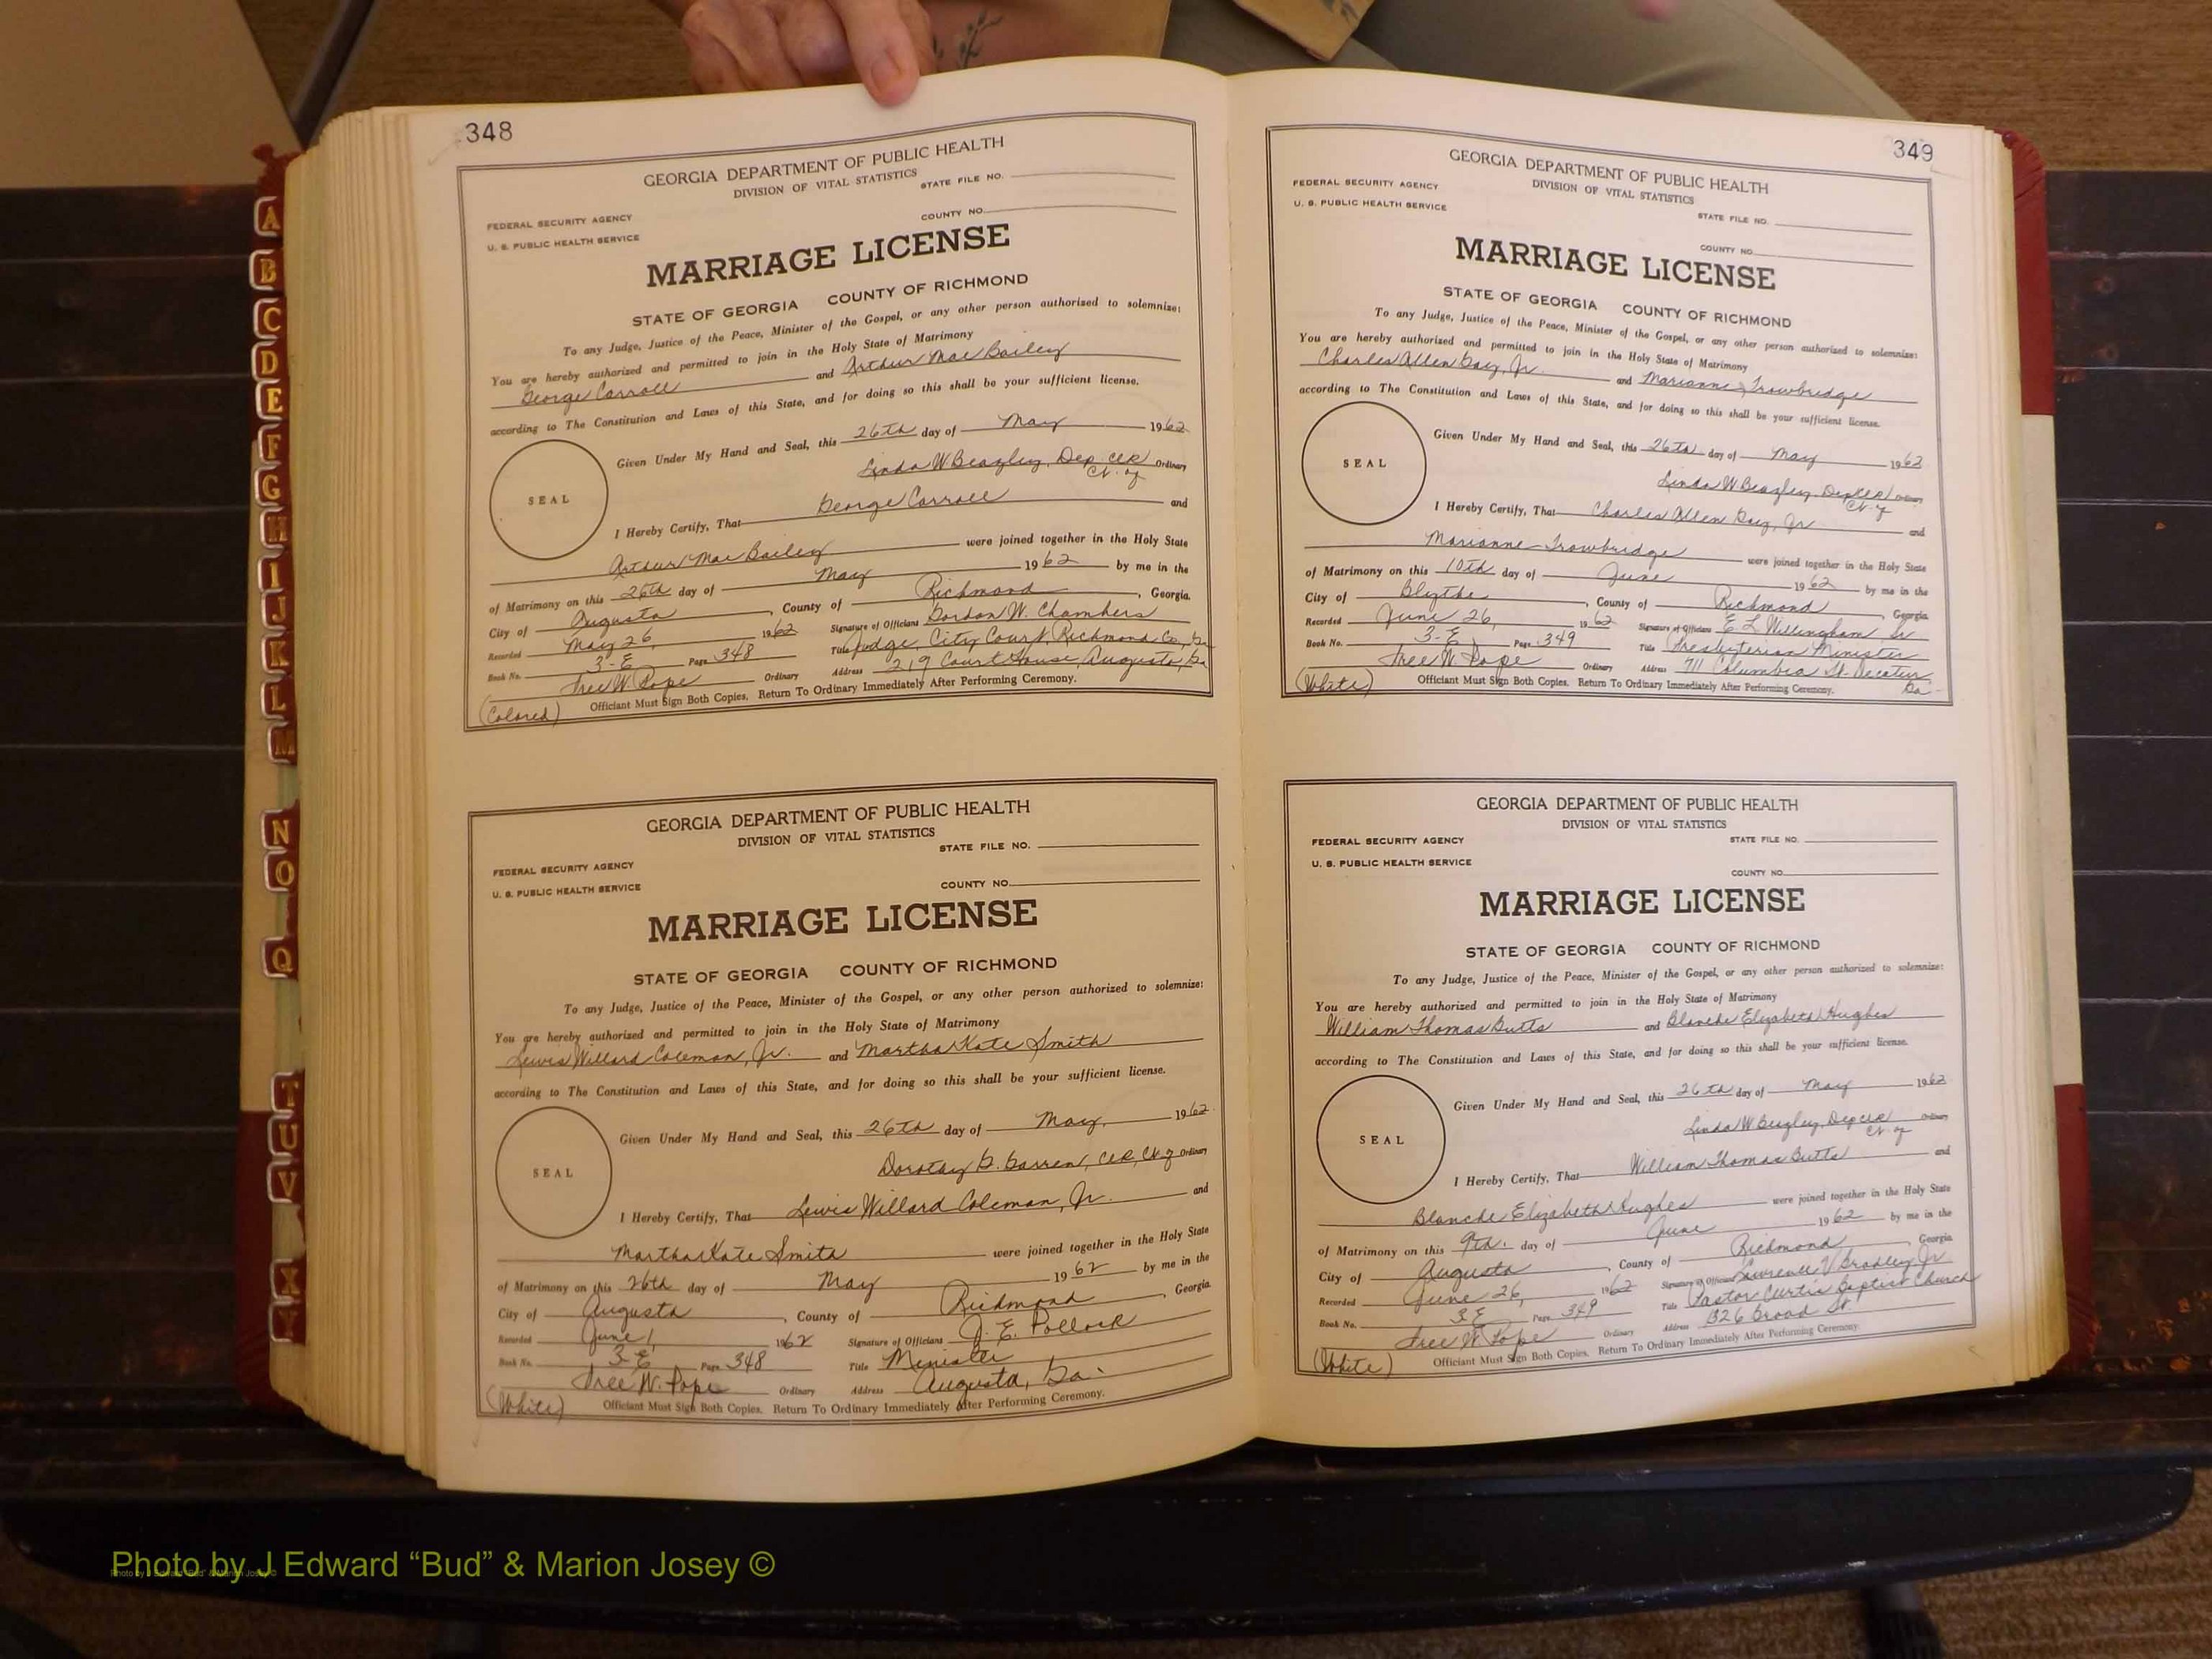 348
GEORGIA DEPARTMENT OF PUBLIC HEALTH
DIVISION OF VITAL STATISTICS
STATE FILE NO.
FEDERAL SECURITY AGENCY
COUNTY NO.
U. S. PUBLIC HEALTH SERVICE
MARRIAGE LICENSE
STATE OF GEORGIA COUNTY OF RICHMOND
To any Judge, Justice of the Peace, Minister of the Gospel, or any other person authorized to solemnize:
You are hereby authorized and permitted to join in the Holy State of Matrimony
George Carroll and Arthur Mae Bailey
according to The Constitution and Laws of this State, and for doing so this shall be your sufficient license.
Given Under My Hand and Seal, this 26th day of May 1962
Linda W Beazley, Dep. Clk Ordinary
Ct. of
SEAL
I Hereby Certify, That George Carroll and
Arthur Mae Bailey were joined together in the Holy State
of Matrimony on this 26th day of May 1962 by me in the
City of Augusta, County of Richmond, Georgia.
Recorded May 26, 1962 Signature of Officiant Gordon W. Chambers
Book No. 3-E Page 348 Title Judge, City Court, Richmond Co., Ga
Free W. Pope Ordinary Address 219 Court House, Augusta, Ga
(Colored) Officiant Must Sign Both Copies. Return To Ordinary Immediately After Performing Ceremony.
GEORGIA DEPARTMENT OF PUBLIC HEALTH
DIVISION OF VITAL STATISTICS
STATE FILE NO.
FEDERAL SECURITY AGENCY
COUNTY NO.
U. S. PUBLIC HEALTH SERVICE
MARRIAGE LICENSE
STATE OF GEORGIA COUNTY OF RICHMOND
To any Judge, Justice of the Peace, Minister of the Gospel, or any other person authorized to solemnize:
You are hereby authorized and permitted to join in the Holy State of Matrimony
Lewis Willard Coleman, Jr. and Martha Kate Smith
according to The Constitution and Laws of this State, and for doing so this shall be your sufficient license.
Given Under My Hand and Seal, this 26th day of May, 1962
Dorothy G. Garren, Clk, Ct. of Ordinary
SEAL
I Hereby Certify, That Lewis Willard Coleman, Jr. and
Martha Kate Smith were joined together in the Holy State
of Matrimony on this 26th day of May 1962 by me in the
City of Augusta, County of Richmond, Georgia.
Recorded June 1, 1962 Signature of Officiant J. E. Pollock
Book No. 3-E Page 348 Title Minister
Free W. Pope Ordinary Address Augusta, Ga.
(White) Officiant Must Sign Both Copies. Return To Ordinary Immediately After Performing Ceremony.
349
GEORGIA DEPARTMENT OF PUBLIC HEALTH
FEDERAL SECURITY AGENCY DIVISION OF VITAL STATISTICS
U. S. PUBLIC HEALTH SERVICE
STATE FILE NO.
COUNTY NO.
MARRIAGE LICENSE
STATE OF GEORGIA COUNTY OF RICHMOND
To any Judge, Justice of the Peace, Minister of the Gospel, or any other person authorized to solemnize:
You are hereby authorized and permitted to join in the Holy State of Matrimony
Charles Allen Day, Jr. and Marianne Trowbridge
according to The Constitution and Laws of this State, and for doing so this shall be your sufficient license.
Given Under My Hand and Seal, this 26th day of May 1962
Linda W Beazley, Dep Clk Ordinary
Ct. of
SEAL
I Hereby Certify, That Charles Allen Day, Jr. and
Marianne Trowbridge were joined together in the Holy State
of Matrimony on this 10th day of June 1962 by me in the
City of Blythe, County of Richmond, Georgia.
Recorded June 26, 1962 Signature of Officiant E L Willingham, Sr
Book No. 3-E Page 349 Title Presbyterian Minister
Free W Pope Ordinary Address 711 Columbia St. Decatur, Ga
(White) Officiant Must Sign Both Copies. Return To Ordinary Immediately After Performing Ceremony.
GEORGIA DEPARTMENT OF PUBLIC HEALTH
DIVISION OF VITAL STATISTICS
FEDERAL SECURITY AGENCY STATE FILE NO.
U. S. PUBLIC HEALTH SERVICE
COUNTY NO.
MARRIAGE LICENSE
STATE OF GEORGIA COUNTY OF RICHMOND
To any Judge, Justice of the Peace, Minister of the Gospel, or any other person authorized to solemnize:
You are hereby authorized and permitted to join in the Holy State of Matrimony
William Thomas Butts and Blanche Elizabeth Hughes
according to The Constitution and Laws of this State, and for doing so this shall be your sufficient license.
Given Under My Hand and Seal, this 26th day of May 1962
Linda W Beazley, Dep Clk Ordinary
Ct. of
SEAL
I Hereby Certify, That William Thomas Butts and
Blanche Elizabeth Hughes were joined together in the Holy State
of Matrimony on this 9th. day of June 1962 by me in the
City of Augusta, County of Richmond, Georgia.
Recorded June 26, 1962 Signature of Officiant Lawrence V Bradley Jr
Book No. 3E Page 349 Title Pastor Curtis Baptist Church
Free W Pope Ordinary Address 1326 Broad St.
(White) Officiant Must Sign Both Copies. Return To Ordinary Immediately After Performing Ceremony.
A
B
C
D
E
F
G
H
I
J
K
L
M
N
O
Q
T
U
V
X
Y
Photo by J Edward “Bud” & Marion Josey ©
Photo by J Edward "Bud" & Marion Josey ©